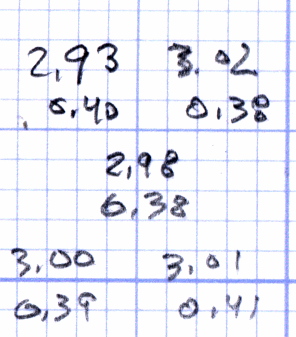 2,93 3.02
0,40 0.38
2,98
0,38
3,00 3.01
0,39 0.41